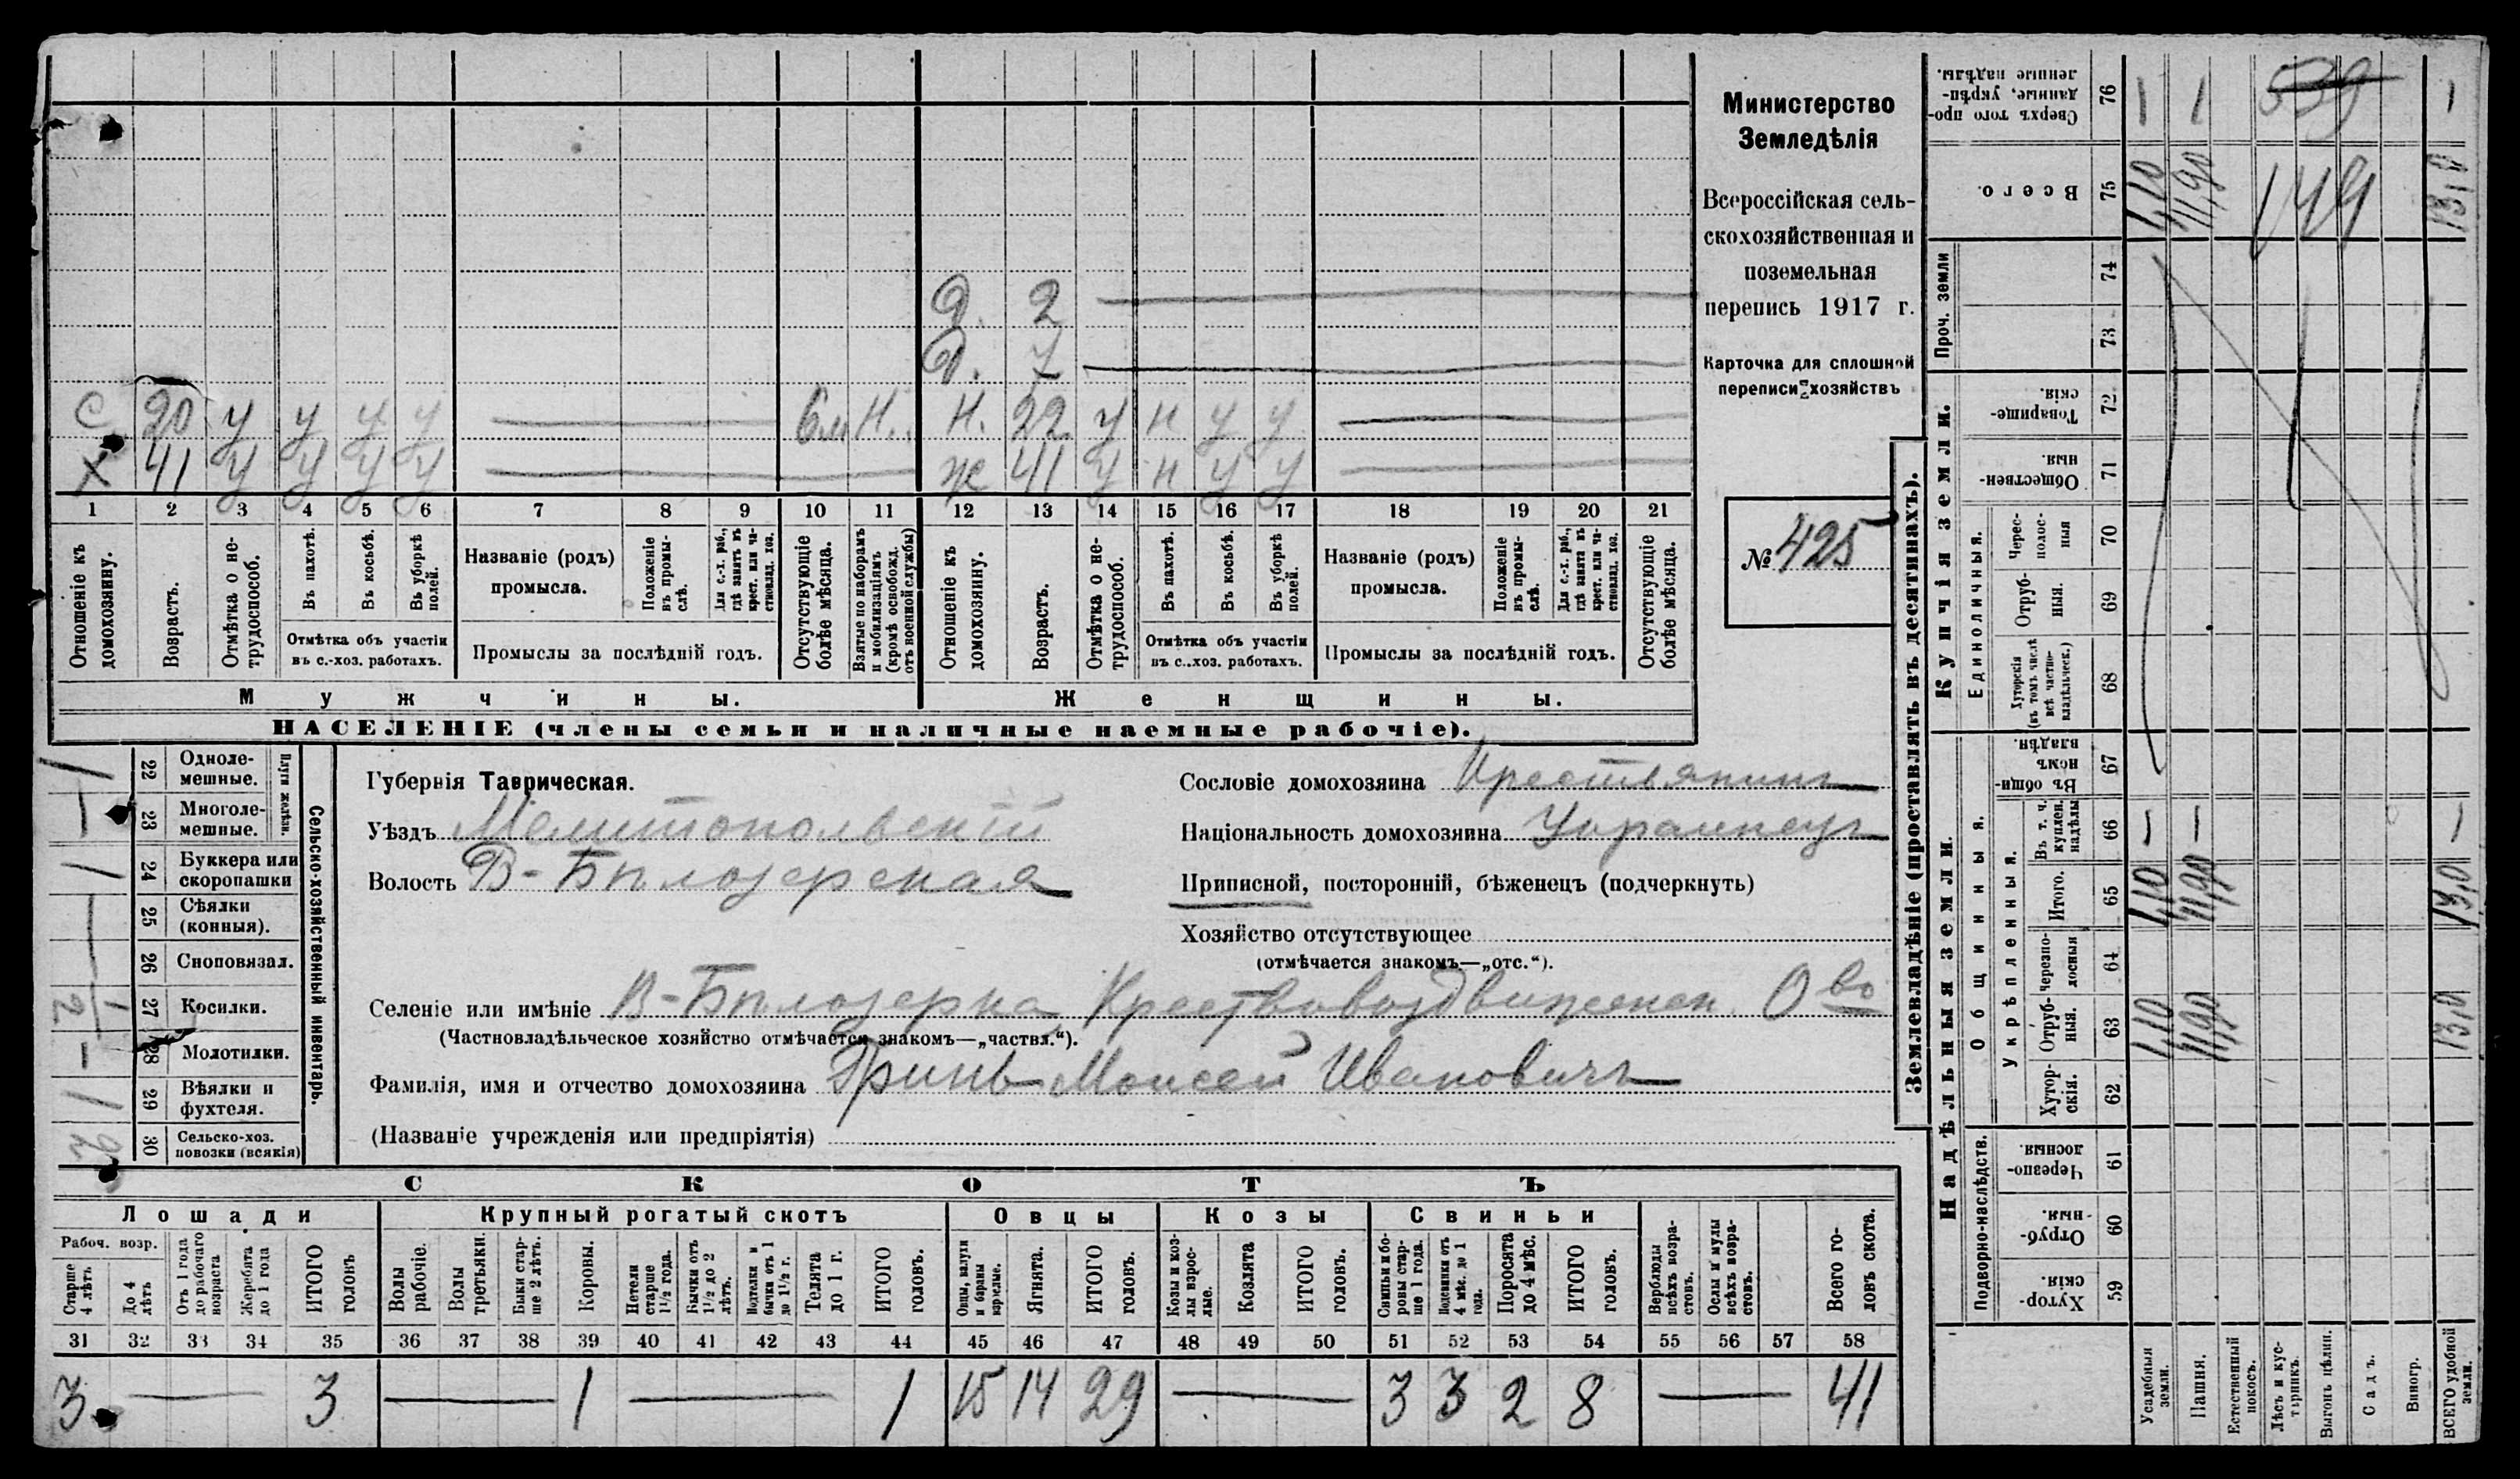 Министерство
Земледѣлія
Всероссійская сель-
скохозяйственная и
поземельная
перепись 1917 г.
Карточка для сплошной
переписи хозяйствъ
№ 425
Д. 2
Д. 7
С 20 у у у у 6м Н. Н. 22 у н у у
Х 41 у у у у ж 41 у н у у
1 2 3 4 5 6 7 8 9 10 11 12 13 14 15 16 17 18 19 20 21
Отношеніе къ домохозяину.
Возрастъ.
Отмѣтка о не-трудоспособ.
Въ пахотѣ.
Въ косьбѣ.
Въ уборкѣ полей.
Отмѣтка объ участіи
въ с.-хоз. работахъ.
Названіе (родъ)
промысла.
Положеніе въ промы-слѣ.
Для с.-х. раб., гдѣ занятъ въ крест. или ча-стновлад. хоз.
Промыслы за послѣдній годъ.
Отсутствующіе болѣе мѣсяца.
Взятые по наборамъ и мобилизаціямъ (кромѣ освобожд. отъ военной службы)
Отношеніе къ домохозяину.
Возрастъ.
Отмѣтка о не-трудоспособ.
Въ пахотѣ.
Въ косьбѣ.
Въ уборкѣ полей.
Отмѣтка объ участіи
въ с.-хоз. работахъ.
Названіе (родъ)
промысла.
Положеніе въ промы-слѣ.
Для с.-х. раб., гдѣ занятъ въ крест. или ча-стновлад. хоз.
Промыслы за послѣдній годъ.
Отсутствующіе болѣе мѣсяца.
Мужчины. Женщины.
НАСЕЛЕНІЕ (члены семьи и наличные наемные рабочіе).
Сельско-хозяйственный инвентарь.
Плуги желѣзн.
1 22 Одноле-мешные.
— 23 Многоле-мешные.
1 24 Буккера или скоропашки
25 Сѣялки (конныя).
26 Сноповязал.
1/2 27 Косилки.
— 28 Молотилки.
1 29 Вѣялки и фухтеля.
2 30 Сельско-хоз. повозки (всякія)
Губернія Таврическая.
Уѣздъ Мелитопольскій
Волость В-Бѣлозерская
Сословіе домохозяина Крестьянинъ
Національность домохозяина Украинецъ
Приписной, посторонній, бѣженецъ (подчеркнуть)
Хозяйство отсутствующее
(отмѣчается знакомъ—„отс.“).
Селеніе или имѣніе В-Бѣлозерка Крестовоздвижен. О во
(Частновладѣльческое хозяйство отмѣчается знакомъ—„частвл.“).
Фамилія, имя и отчество домохозяина Гринь Моисей Ивановичъ
(Названіе учрежденія или предпріятія)
СКОТЪ
Лошади Крупный рогатый скотъ Овцы Козы Свиньи
Рабоч. возр.
Старше 4 лѣтъ
До 4 лѣтъ
Отъ 1 года до рабочаго возраста
Жеребята до 1 года
ИТОГО головъ
Волы рабочіе.
Волы третьяки.
Быки стар-ше 2 лѣтъ.
Коровы.
Нетели старше 1½ года.
Бычки отъ 1½ до 2 лѣтъ.
Подтелки и бычки отъ 1 до 1½ г.
Телята до 1 г.
ИТОГО головъ.
Овцы, валухи и бараны взрослые.
Ягнята.
ИТОГО головъ.
Козы и коз-лы взрос-лые.
Козлята
ИТОГО головъ.
Свиньи и бо-ровы стар-ше 1 года.
Подсвинки отъ 4 мѣс. до 1 года.
Поросята до 4 мѣс.
ИТОГО головъ.
Верблюды всѣхъ возра-стовъ.
Ослы и мулы всѣхъ возра-стовъ.
Всего го-ловъ скота.
31 32 33 34 35 36 37 38 39 40 41 42 43 44 45 46 47 48 49 50 51 52 53 54 55 56 57 58
3 — 3 — 1 — 1 15 14 29 — 3 3 2 8 — 41
Землевладѣніе (проставлять въ десятинахъ).
Надѣльныя земли. Купчія земли. Проч. земли
Подворно-наслѣдств. Общинныя. Укрѣпленныя. Единоличныя.
Сверхъ того про-данные, укрѣп-ленные надѣлы. 76 1 1 539 1
Всего. 75 1,10 11,90 149 13,0
74
73
Товарище-скія. 72
Обществен-ныя. 71
Черес-полос-ныя 70
Отруб-ныя. 69
Хуторскія (въ томъ числѣ всѣ частно-владѣльческ.) 68
Въ общин-номъ владѣн. 67
Въ т. ч. куплен. надѣлы 66 — — —
Итого. 65 1,10 11,90 13,0
Черезпо-лосныя 64
Отруб-ныя. 63 1,10 11,90 13,0
Хутор-скія. 62
Черезпо-лосныя. 61
Отруб-ныя. 60
Хутор-скія. 59
Усадебныя земли.
Пашня.
Естественный покосъ.
Лѣсъ и кус-тарникъ.
Выгонъ цѣлин.
Садъ.
Виногр.
ВСЕГО удобной земли.